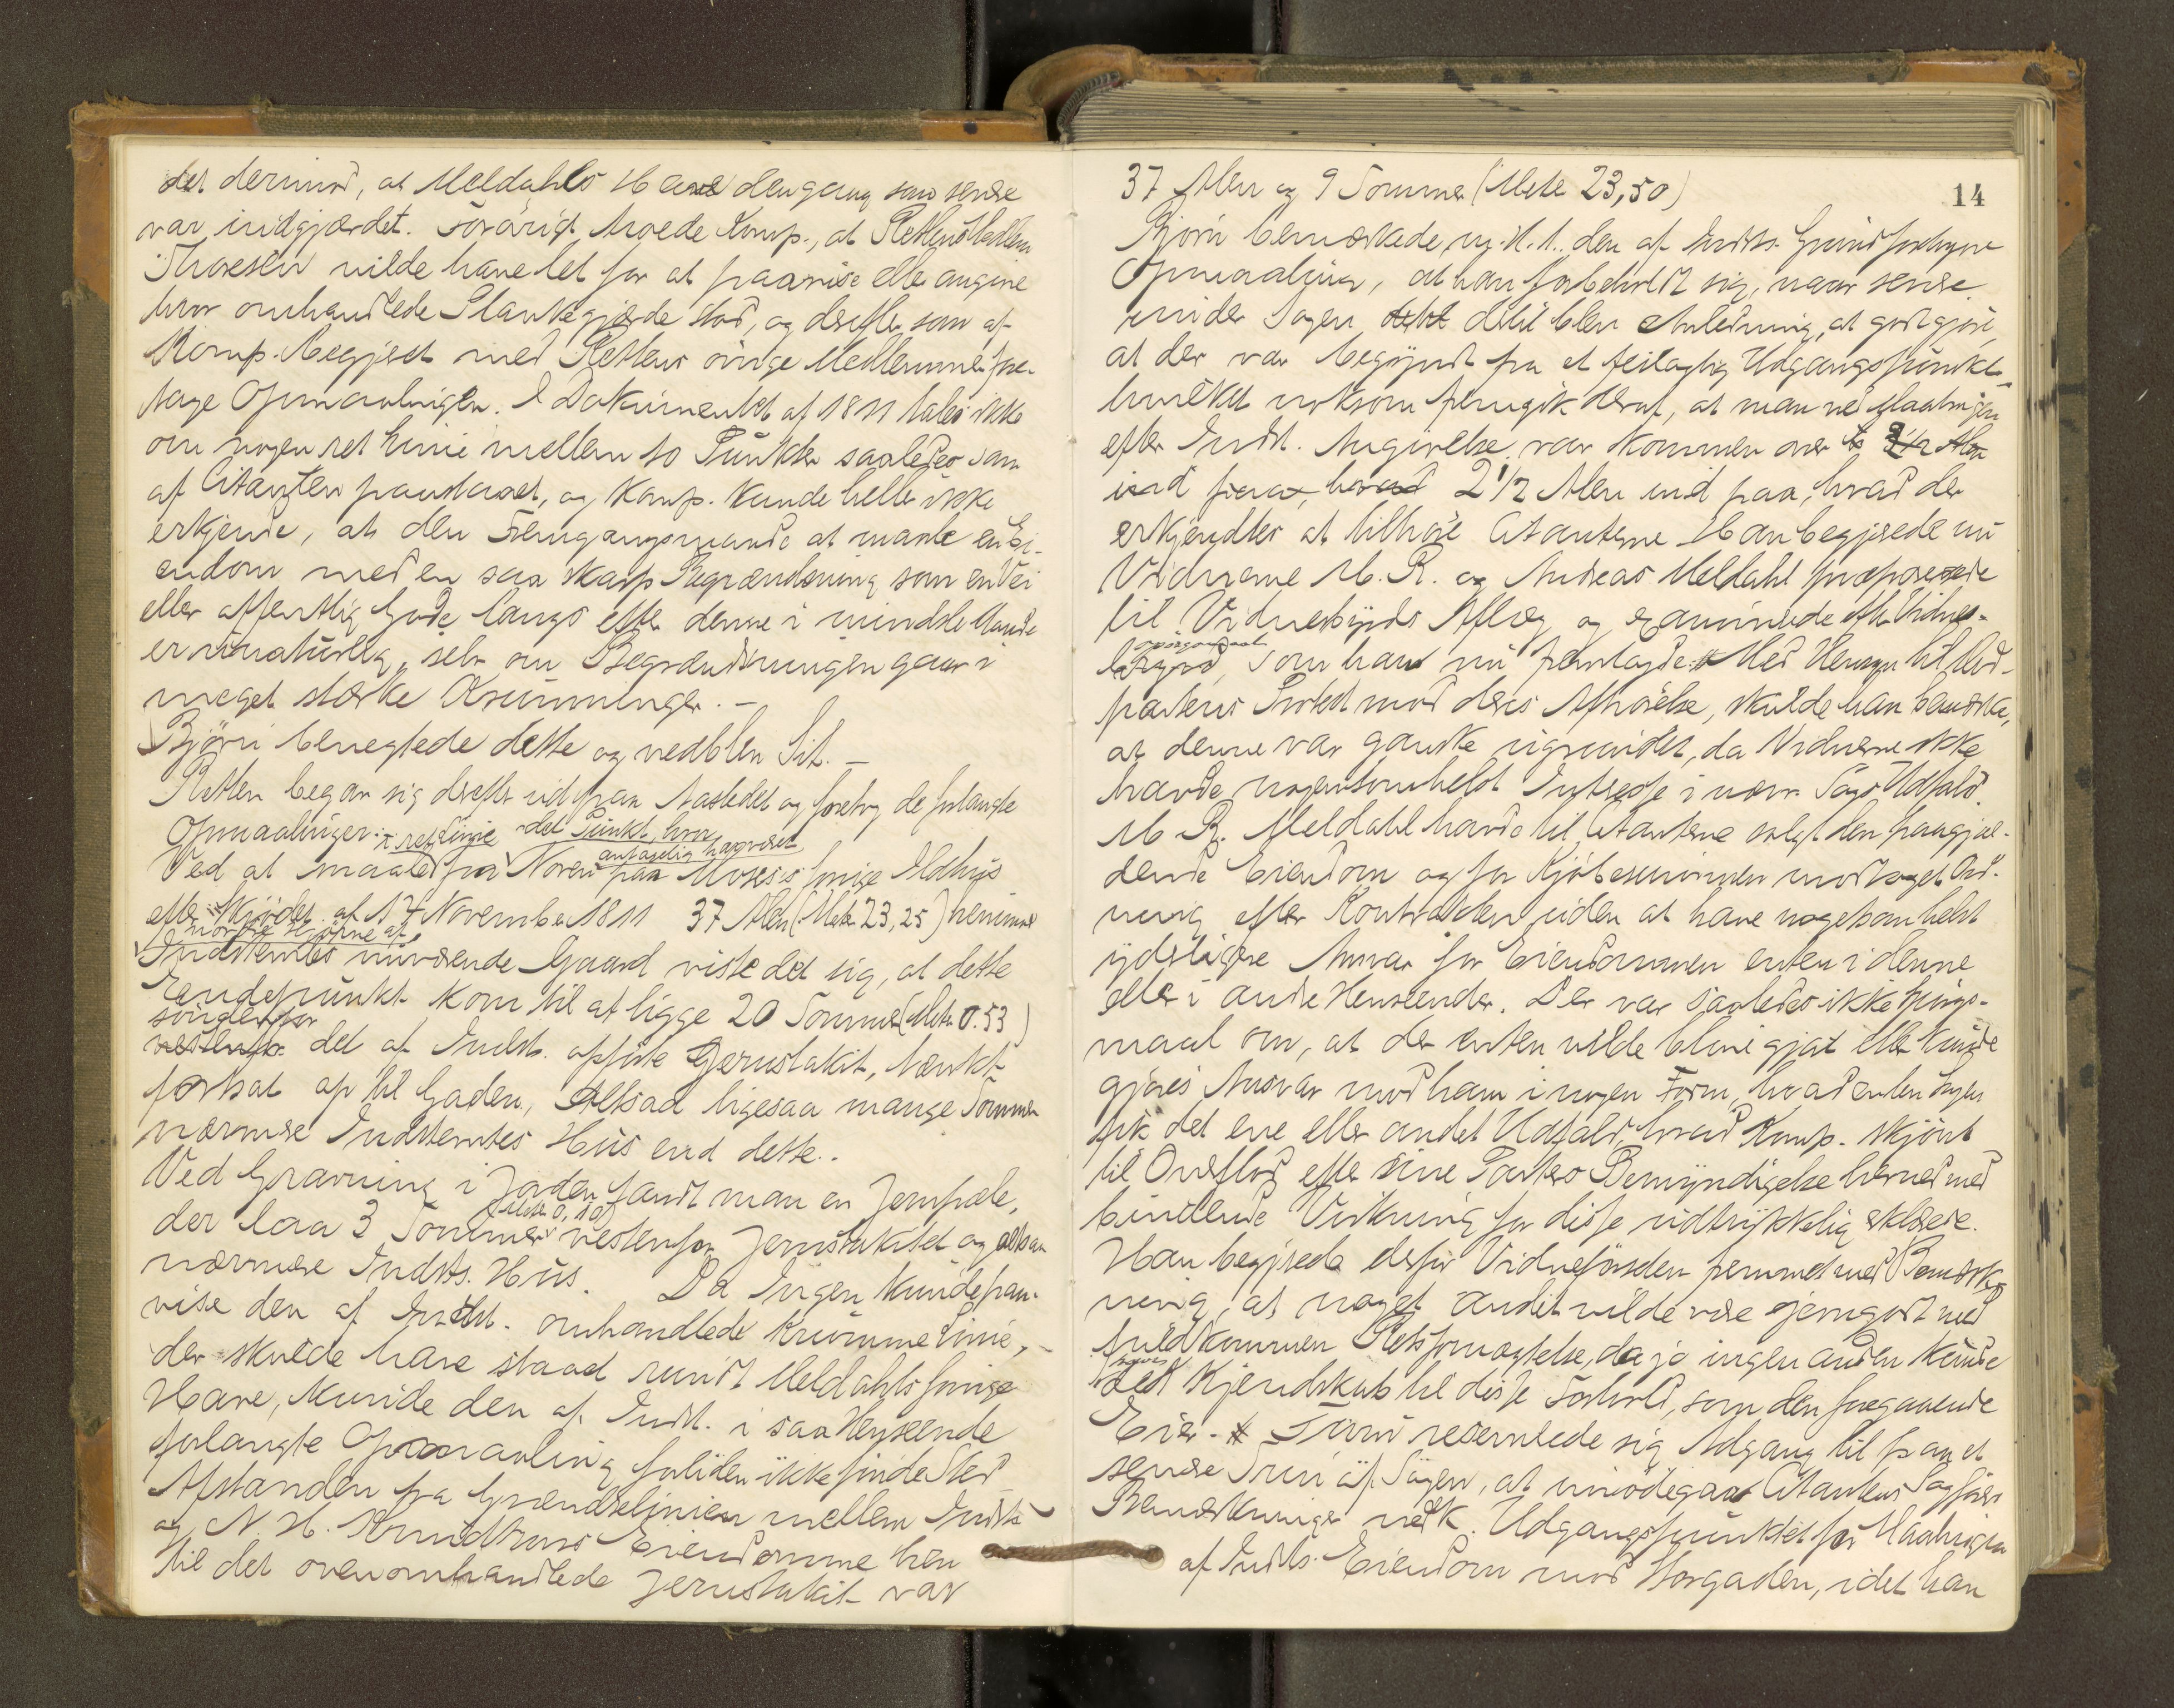 det derimod, at Meldahls Have dengang som senere
var indgjærdet. Forøvrigt troede Komp., at Rettens Medlem
Thoresen vilde have let for at paavise eller angive
hvor omhandlede Plankegjærde stod, og derefter som af
Komp. begjært med Rettens øvrige Medlemmer fore-
tage Opmaalingen. I Dokumentet af 1811 tales ikke
om nogen ret Linie mellem to Punkter saaledes som
af Citanten paastaaet, og Komp. kunde heller ikke
erkjende, at den Fremgangsmaade at maale en Ei-
endom med en saa skarp Begrændsning som en Vei
eller offentlig Gade langs efter denne i mindste Maade
er unaturlig, selv om Begrændsningen gaar i
meget stærke Krumninger. –
Bjørn benegtede dette og vedblev Sit. –
Retten begav sig derefter ud paa Aastedet og foretog de forlangte
Opmaalinger. i ret Linie det Punkt, hvor
Ved at maale fra Noven paa antagelig har været Moses's forrige Ildhus
efter Skjødet af 14 November 1811 37 Alen (Meter 23,25) henimod
nordre Hjørne af
Indstevntes nuværende Gaard viste det sig, at dette
Endepunkt kom til at ligge 20 Tommer (Meter 0.53)
søndenfor
vestenfor det af Indst. opførte Jernstakit, tænkt
fortsat op til Gaden, altsaa ligesaa mange Tommer
nærmere Indstevntes Hus end dette.
Ved Gravning i Jorden fandt man en Jernpæle,
(Meter 0,10)
der laa 3 Tommer vestenfor Jernstakitet og altsaa
nærmere Indsts. Hus. Da Ingen kunde paa-
vise den af Indst. omhandlede krumme Linie,
der skulde have staaet rundt Meldahls forrige
Have, kunde den af Indst. i saa Henseende
forlangte Opmaaling forliden ikke finde Sted
Afstanden fra Grændselinien mellem Indste
og N. H. Knudtzons Eiendomme hen
til det ovenomhandlede Jernstakit var
14
37 Alen og 9 Tommer (Meter 23,50)
Bjørn bemærkede, ang. den af Indsts. Grund foretagne
Opmaaling, at han forbeholdt sig, naar senere
under Sagen dertil blev Anledning, at godtgjøre,
at der var begyndt fra et feilagtig Udgangspunkt
hvilket noksom fremgik deraf, at man ved Maalingen
efter Indst. Angivelse var kommen over to 2 1/2 Alen
ind paa, hvad 2 1/2 Alen ind paa, hvad der
erkjendtes at tilhøre Citanterne. Han begjærede nu
Vidnerne M. R. og Andreas Meldahl fremropede
til Vidnesbyrds Aflæg og examinerede efter Vidnes-
spørgsmaal
som han nu fremlagde. Med Hensyn til Mod-
partens Protest mod deres Afhørelse, skulde han bemærke,
at denne var ganske ugrundet, da Vidnerne ikke
havde nogensomhelst Interesse i nærv. Sags Udfald.
M. R. Meldahl havde til Citanterne solgt den paagjæl-
dende Eiendom og for Kjøbesummen modtaget Ord-
ning efter Kontrakten uden at have nogetsomhelst
yderligere Ansvar for Eiendommen enten i denne
eller i andre Henseender. Der var saaledes ikke Spørgs-
maal om, at der enten vilde blive gjort eller kunde
gjøres Ansvar mod ham i nogen Form, hvad enten Sagen
fik det ene eller andet Udfald, hvad Komp. skjønt
til Overflod efter sine Parters Bemyndigelse herved med
bindende Virkning for disse udtrykkelig erklærede.
Han begjærede derfor Vidneførselen fremmet med Bemærk-
ning, at noget andet vilde være jevngodt med
fuldkommen Retsfornægtelse, da jo ingen anden kunde
det Kjendskab til disse Forhold, som den foregaaende
Eier. Finne reserverede sig Adgang til paa et
senere Trin af Sagen, at imødegaa Citantens Sagførers
Bemærkninger vedk. Udgangspunktet for Maalingen
af Indsts. Eiendom mod Storgaden, idet han